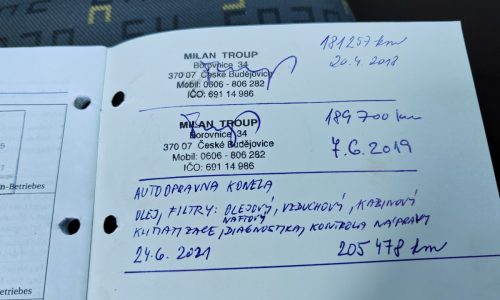 MILAN TROUP
Borovnice 34
370 07 České Budějovice
Mobil: 0606 - 806 282
IČO: 691 14 986
181257 km
20.4 2018
MILAN TROUP
Borovnice 34
370 07 České Budějovice
Mobil: 0606 - 806 282
IČO: 691 14 986
189 700 km
7.6.2019
AUTOOPRAVNA KONELA
OLEJ, FILTRY: OLEJOVÝ, VZDUCHOVÝ, KABINOVÝ
NAFTOVÝ
KLIMATIZACE, DIAGNOSTIKA, KONTROLA NÁPRAVY
24.6.2021
205 478 km
n-Betriebes
etriebes